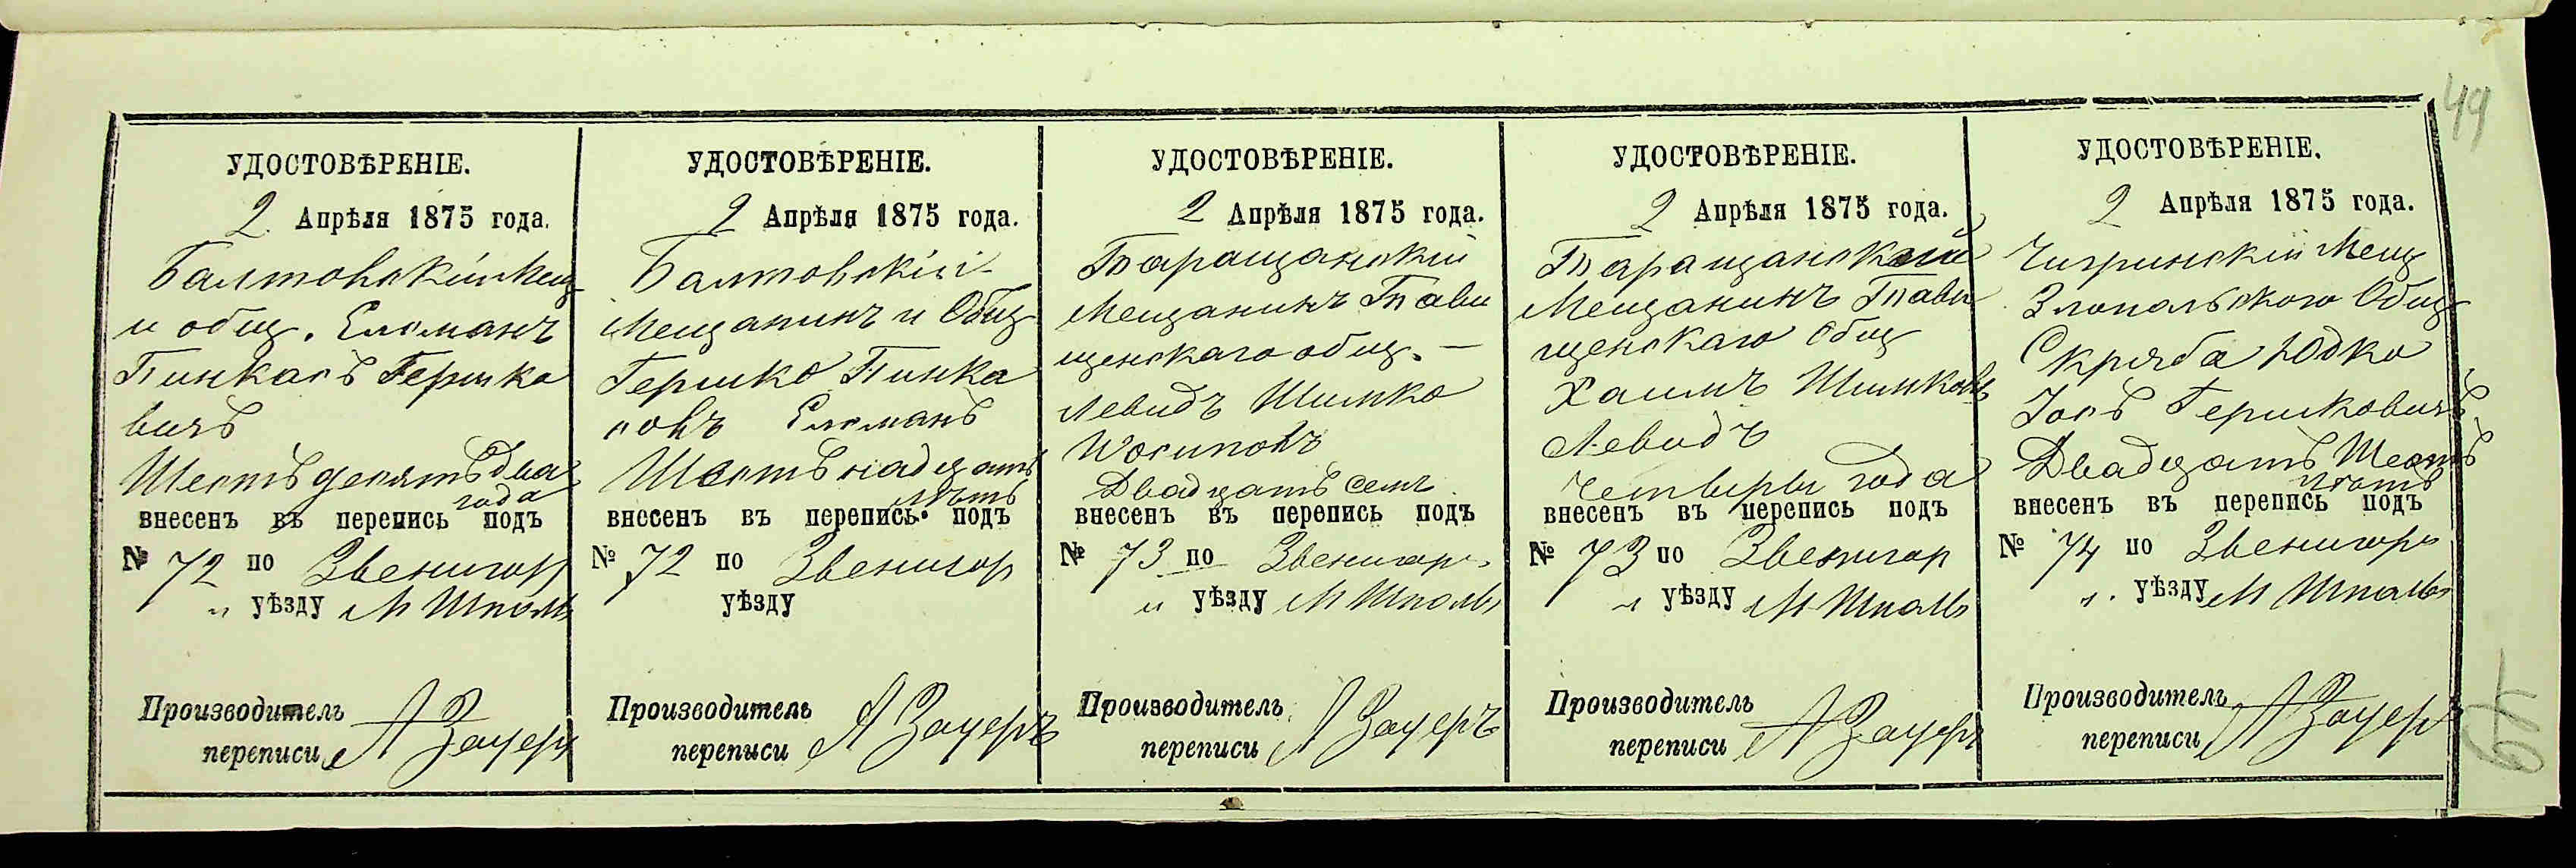 49
УДОСТОВѢРЕНІЕ.
2 Апрѣля 1875 года.
Балтовскій Мещ
и общ. Елсманъ
Пинкасъ Гершко
вичъ
Шестьдесять два
года
внесенъ въ перепись подъ
№ 72 по Звенигор
у уѣзду М Шполѣ
Производитель
переписи А Зауеръ
УДОСТОВѢРЕНІЕ.
2 Апрѣля 1875 года.
Балтовскій
Мещанинъ и Общ
Гершко Пинка
совъ Елсманъ
Шестьнадцать
лѣтъ
внесенъ въ перепись подъ
№ 72 по Звенигор
уѣзду
Производитель
переписи А Зауеръ
УДОСТОВѢРЕНІЕ.
2 Апрѣля 1875 года.
Таращанскій
Мещанинъ Тави
щенскаго общ. —
Левидъ Шимко
Иосиповъ
Двадцать семь
внесенъ въ перепись подъ
№ 73 по Звенигор
у уѣзду М Шполѣ
Производитель
переписи А Зауеръ
УДОСТОВѢРЕНІЕ.
2 Апрѣля 1875 года.
Таращанский
Мещанинъ Тави
щенскаго Общ
Хаимъ Шимковъ
Левидъ
Четыры года
внесенъ въ перепись подъ
№ 73 по Звенигор
у уѣзду М Шполѣ
Производитель
переписи А Зауеръ
УДОСТОВѢРЕНІЕ.
2 Апрѣля 1875 года.
Чигринскій Мещ
Злопольского Общ
Скряба Юдко
Іосъ Гершковичъ
Двадцать Шесть
лѣтъ
внесенъ въ перепись подъ
№ 74 по Звенигор
у. уѣзду М Шполѣ
Производитель
переписи А Зауеръ